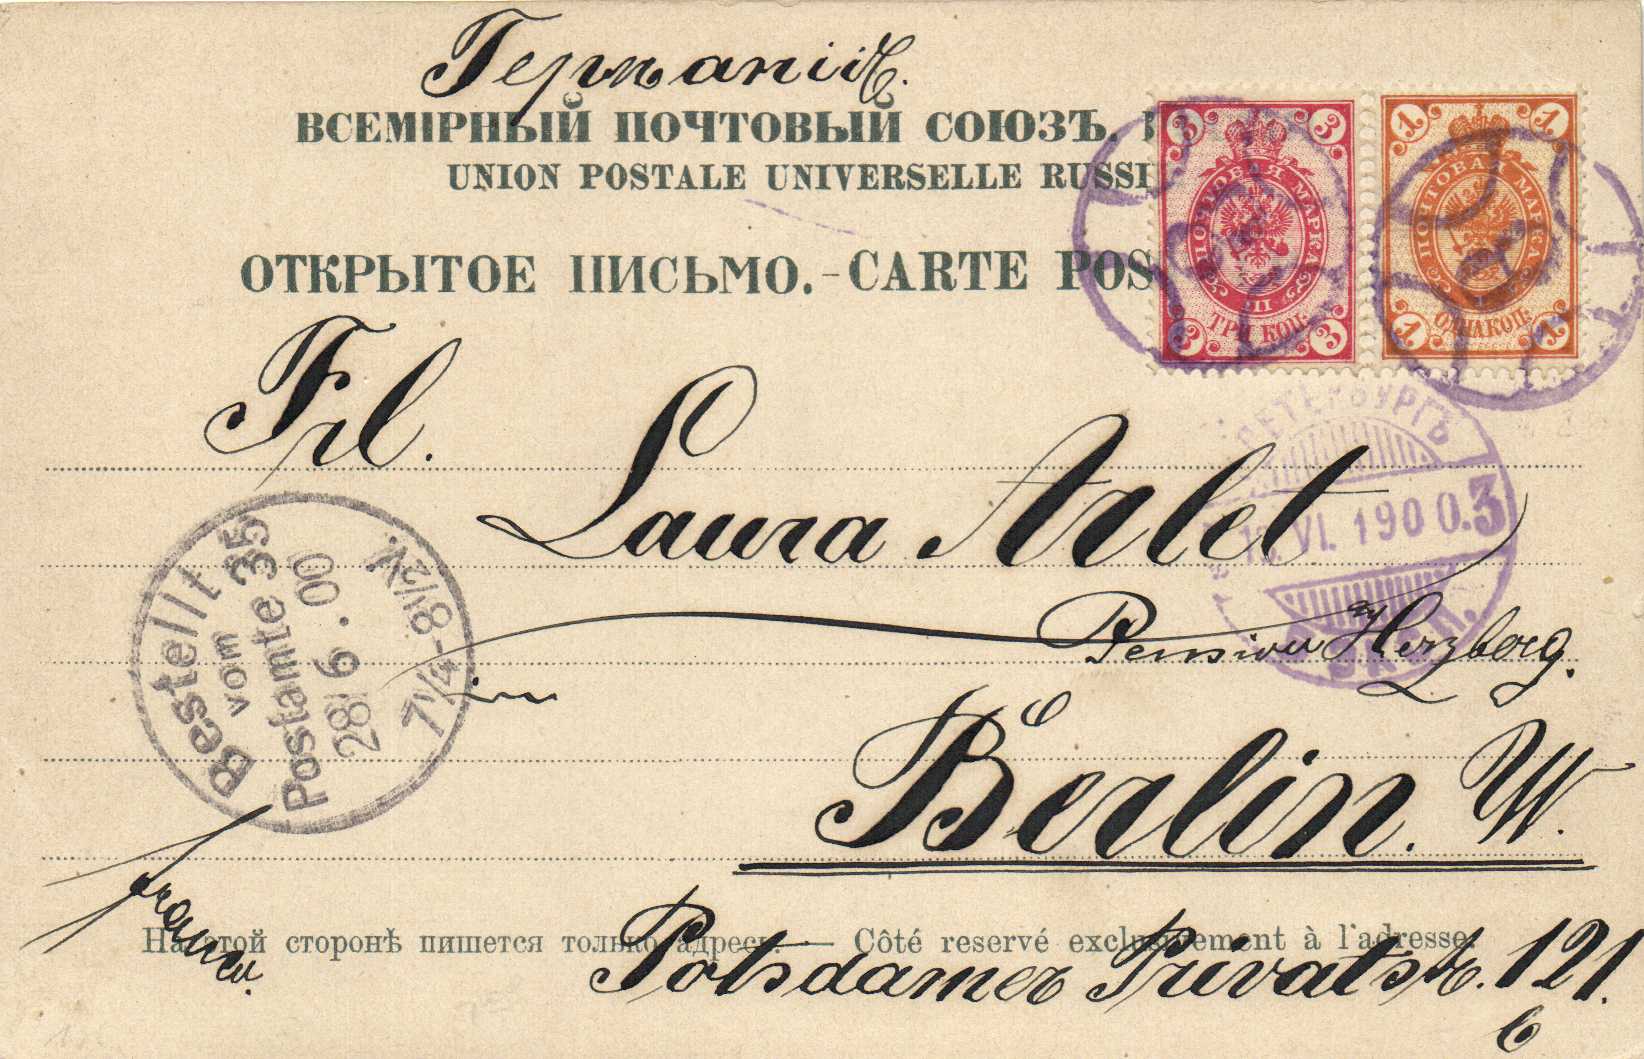 Германія.
ВСЕМІРНЫЙ ПОЧТОВЫЙ СОЮЗЪ.
UNION POSTALE UNIVERSELLE RUSSI
ОТКРЫТОЕ ПИСЬМО.-CARTE POS
3 3
ПОЧТОВАЯ МАРКА
ТРИ КОП.
3 3
1 1
ПОЧТОВАЯ МАРКА
ОДНА КОП.
1 1
ПЕТЕРБУРГЪ
VI. 1900.3
Frl.
Laura Arlet
Pension Herzberg.
in
Berlin. W.
Bestellt
vom
Postamte 35
28 6. 00
7 1/4-8 1/2 V.
franco.
На этой сторонѣ пишется только адресъ. — Côté reservé exclusivement à l'adresse.
Potsdamer Privatstr. 121.
6